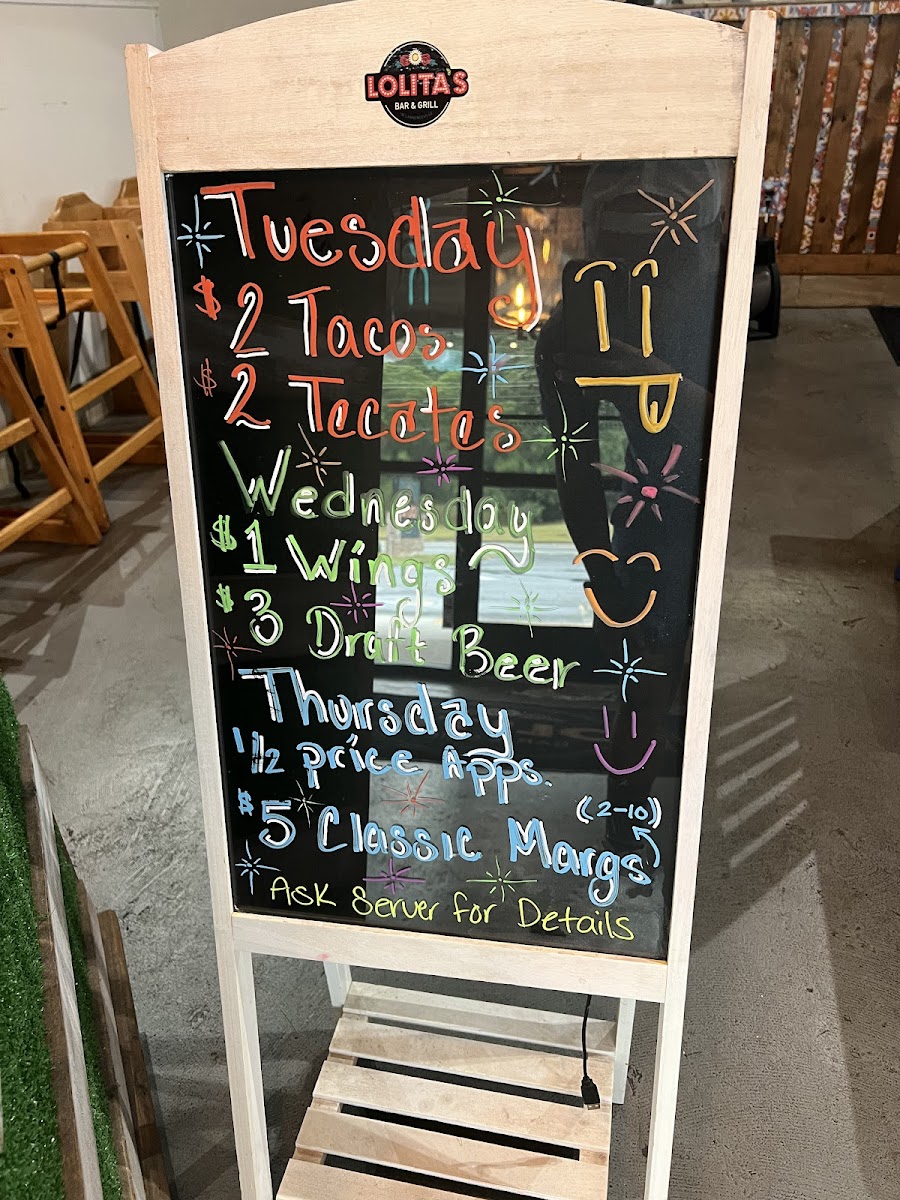 LOLITA'S
BAR & GRILL
Tuesday
$2 Tacos
$2 Tecates
Wednesday
$1 Wings
$3 Draft Beer
Thursday
1/2 price Apps.
(2-10)
$5 Classic Margs
Ask Server for Details